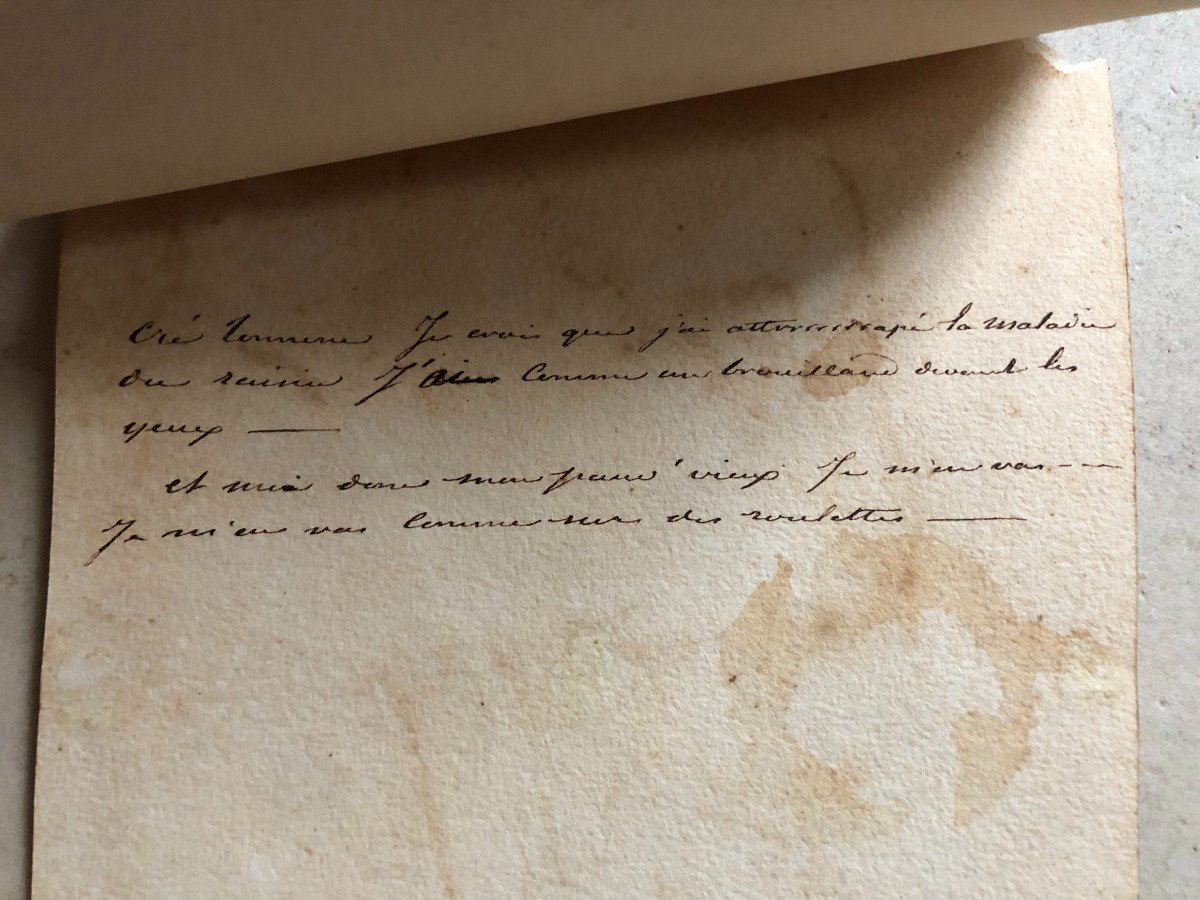 Cré tonnerre Je crois que j'ai attrrrrrrapé la maladie
du raisin J'ai comme un brouillard devant les
yeux —
et moi donc mon pauv' vieux Je m'en vas - -
Je m'en vas comme sur des roulettes —